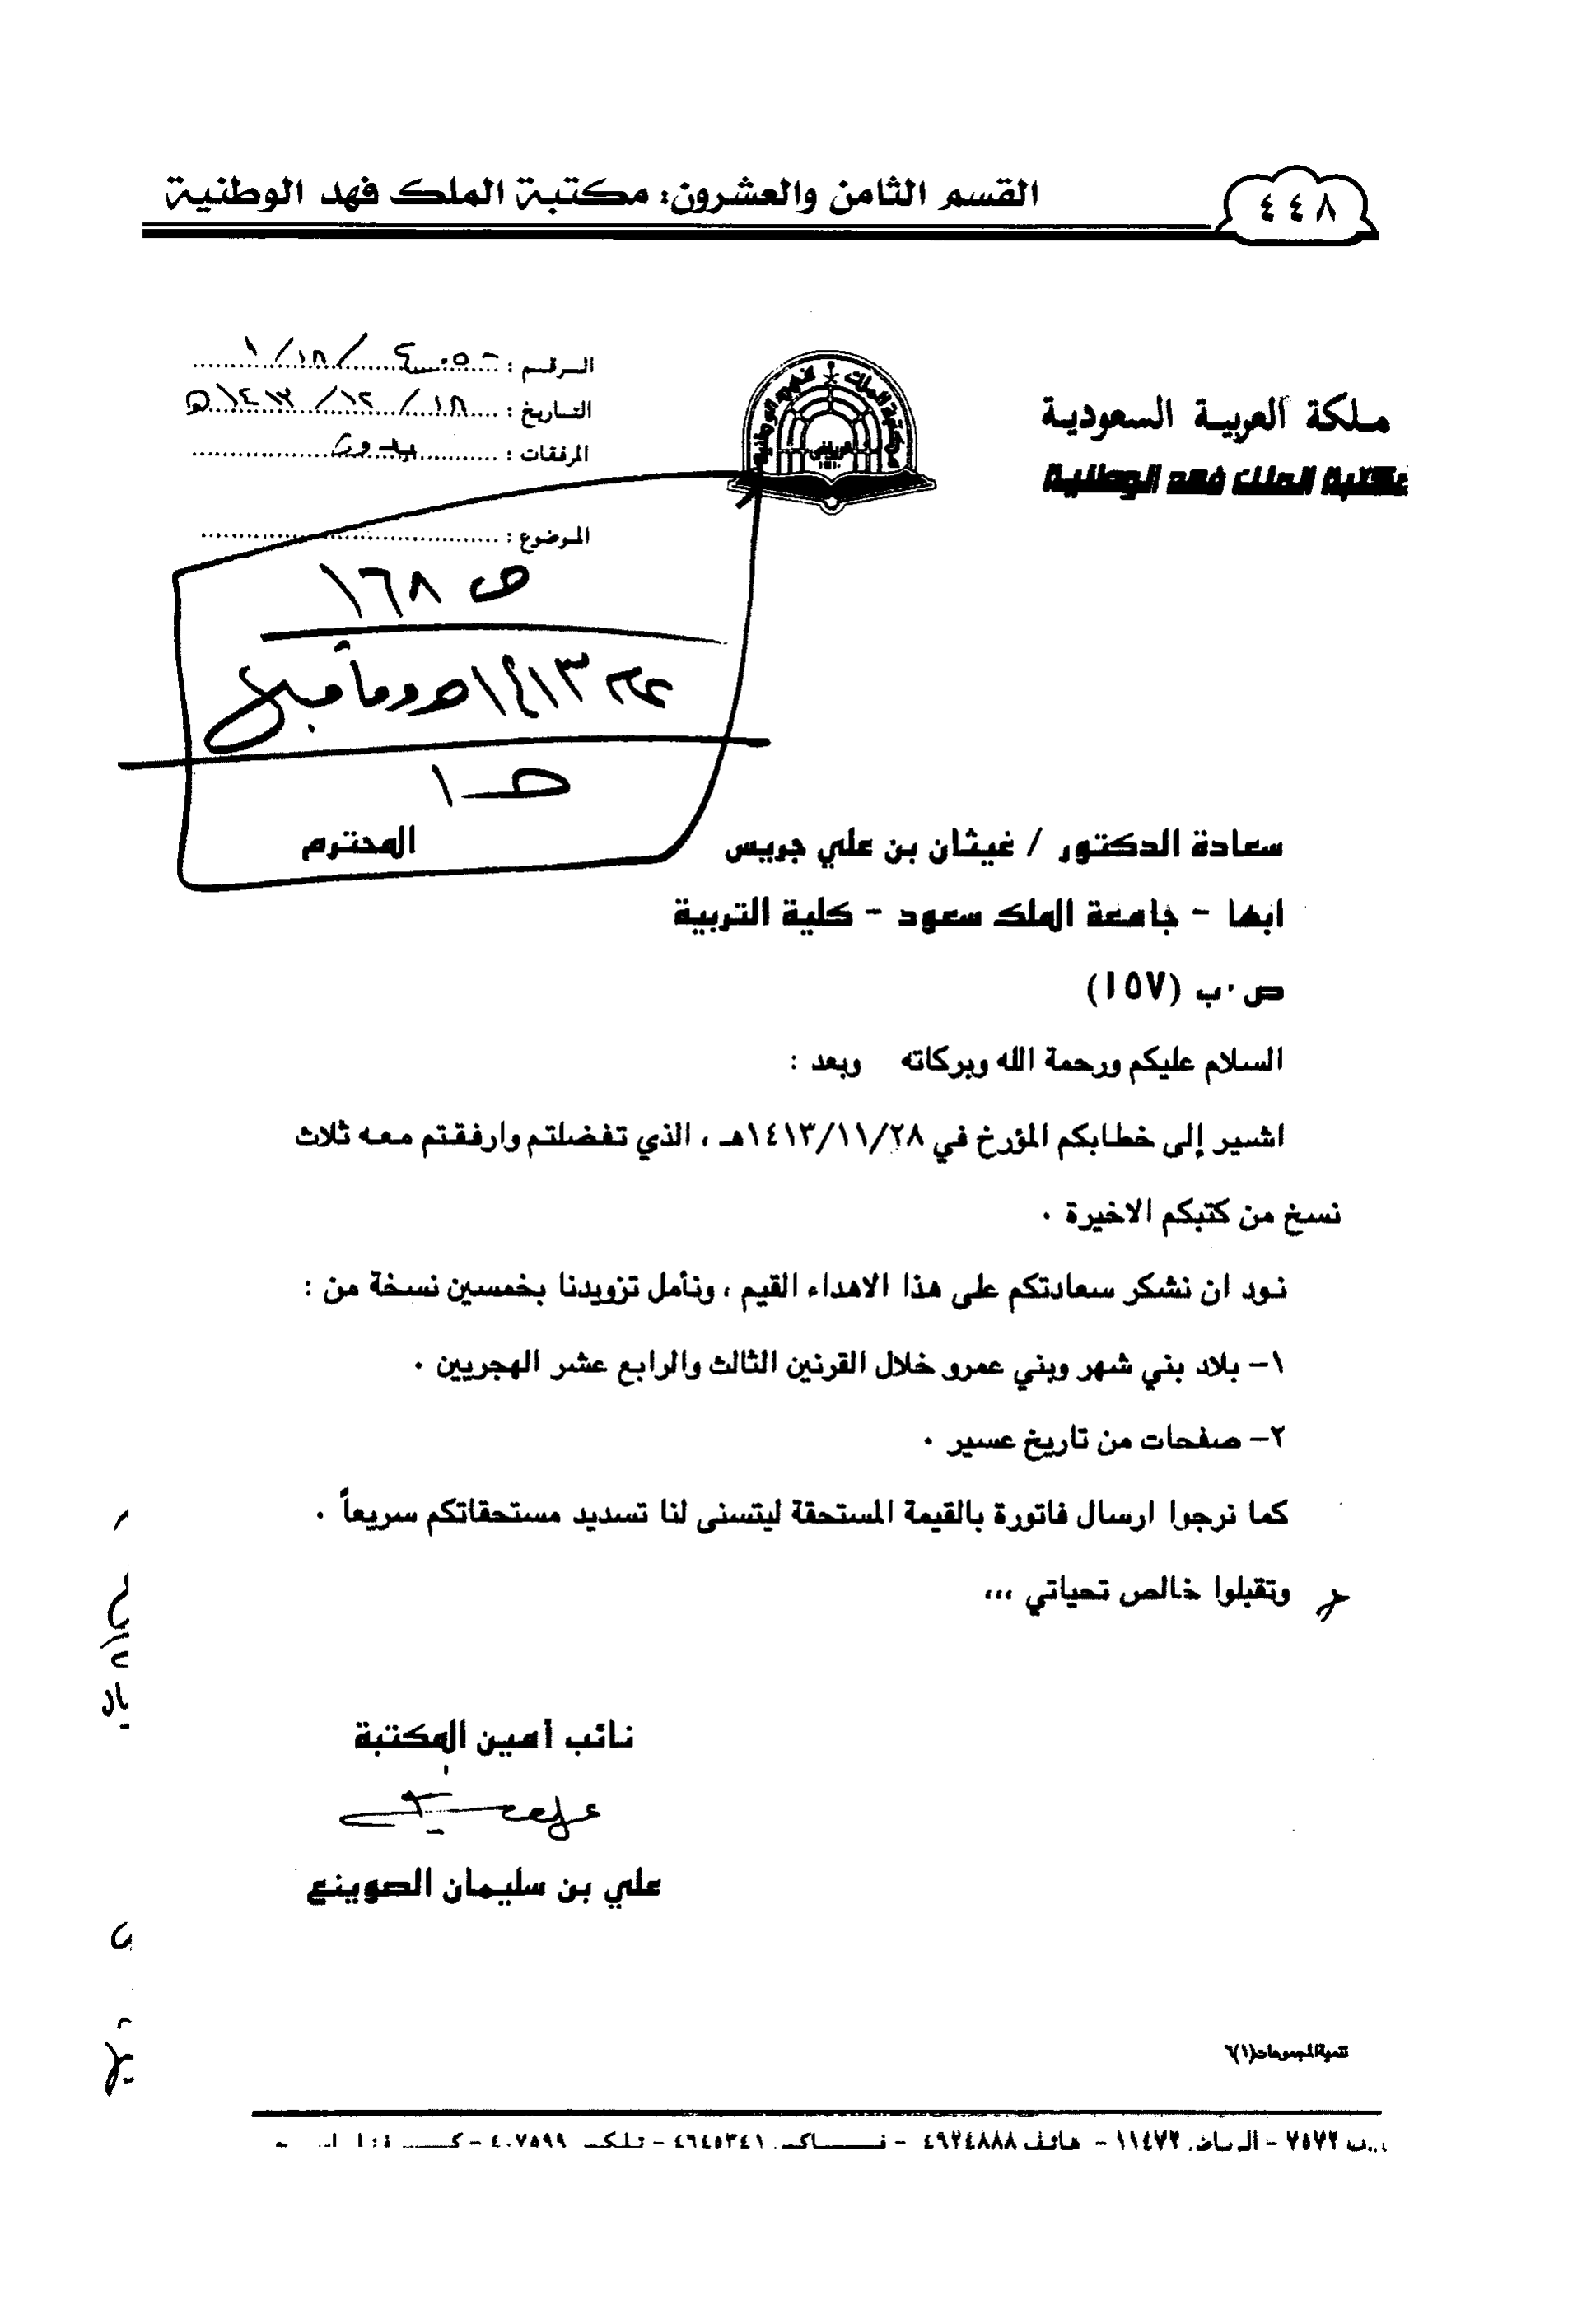 القسم الثامن والعشرون: مكتبة الملك فهد الوطنية
٤٤٨
ملكة العربية السعودية
مكتبة الملك فهد الوطنية
الرقم :
التاريخ : ١٨ / ١٢ / ١٤١٣هـ
المرفقات : بدون
الموضوع :
ص ١٦٨
١٤١٣هـ وما قبل
حـ ١
سعادة الدكتور / غيثان بن علي جريس المحترم
ابها - جامعة الملك سعود - كلية التربية
ص.ب (١٥٧)
السلام عليكم ورحمة الله وبركاته وبعد :
اشير إلى خطابكم المؤرخ في ١٤١٣/١١/٢٨هـ ، الذي تفضلتم وارفقتم معه ثلاث
نسخ من كتبكم الاخيرة .
نود ان نشكر سعادتكم على هذا الاهداء القيم ، ونأمل تزويدنا بخمسين نسخة من :
١- بلاد بني شهر وبني عمرو خلال القرنين الثالث والرابع عشر الهجريين .
٢- صفحات من تاريخ عسير .
كما نرجوا ارسال فاتورة بالقيمة المستحقة ليتسنى لنا تسديد مستحقاتكم سريعاً .
وتقبلوا خالص تحياتي ...
نائب أمين المكتبة
علي بن سليمان الصوينع
تنمية المجموعات(١)٦
ب ٧٥٧٢ - الرياض ١١٤٧٢ - هاتف ٤٦٢٤٨٨٨ - فاكس ٤٦٤٥٣٤١ - تلكس ٤٠٧٥٩٩ -